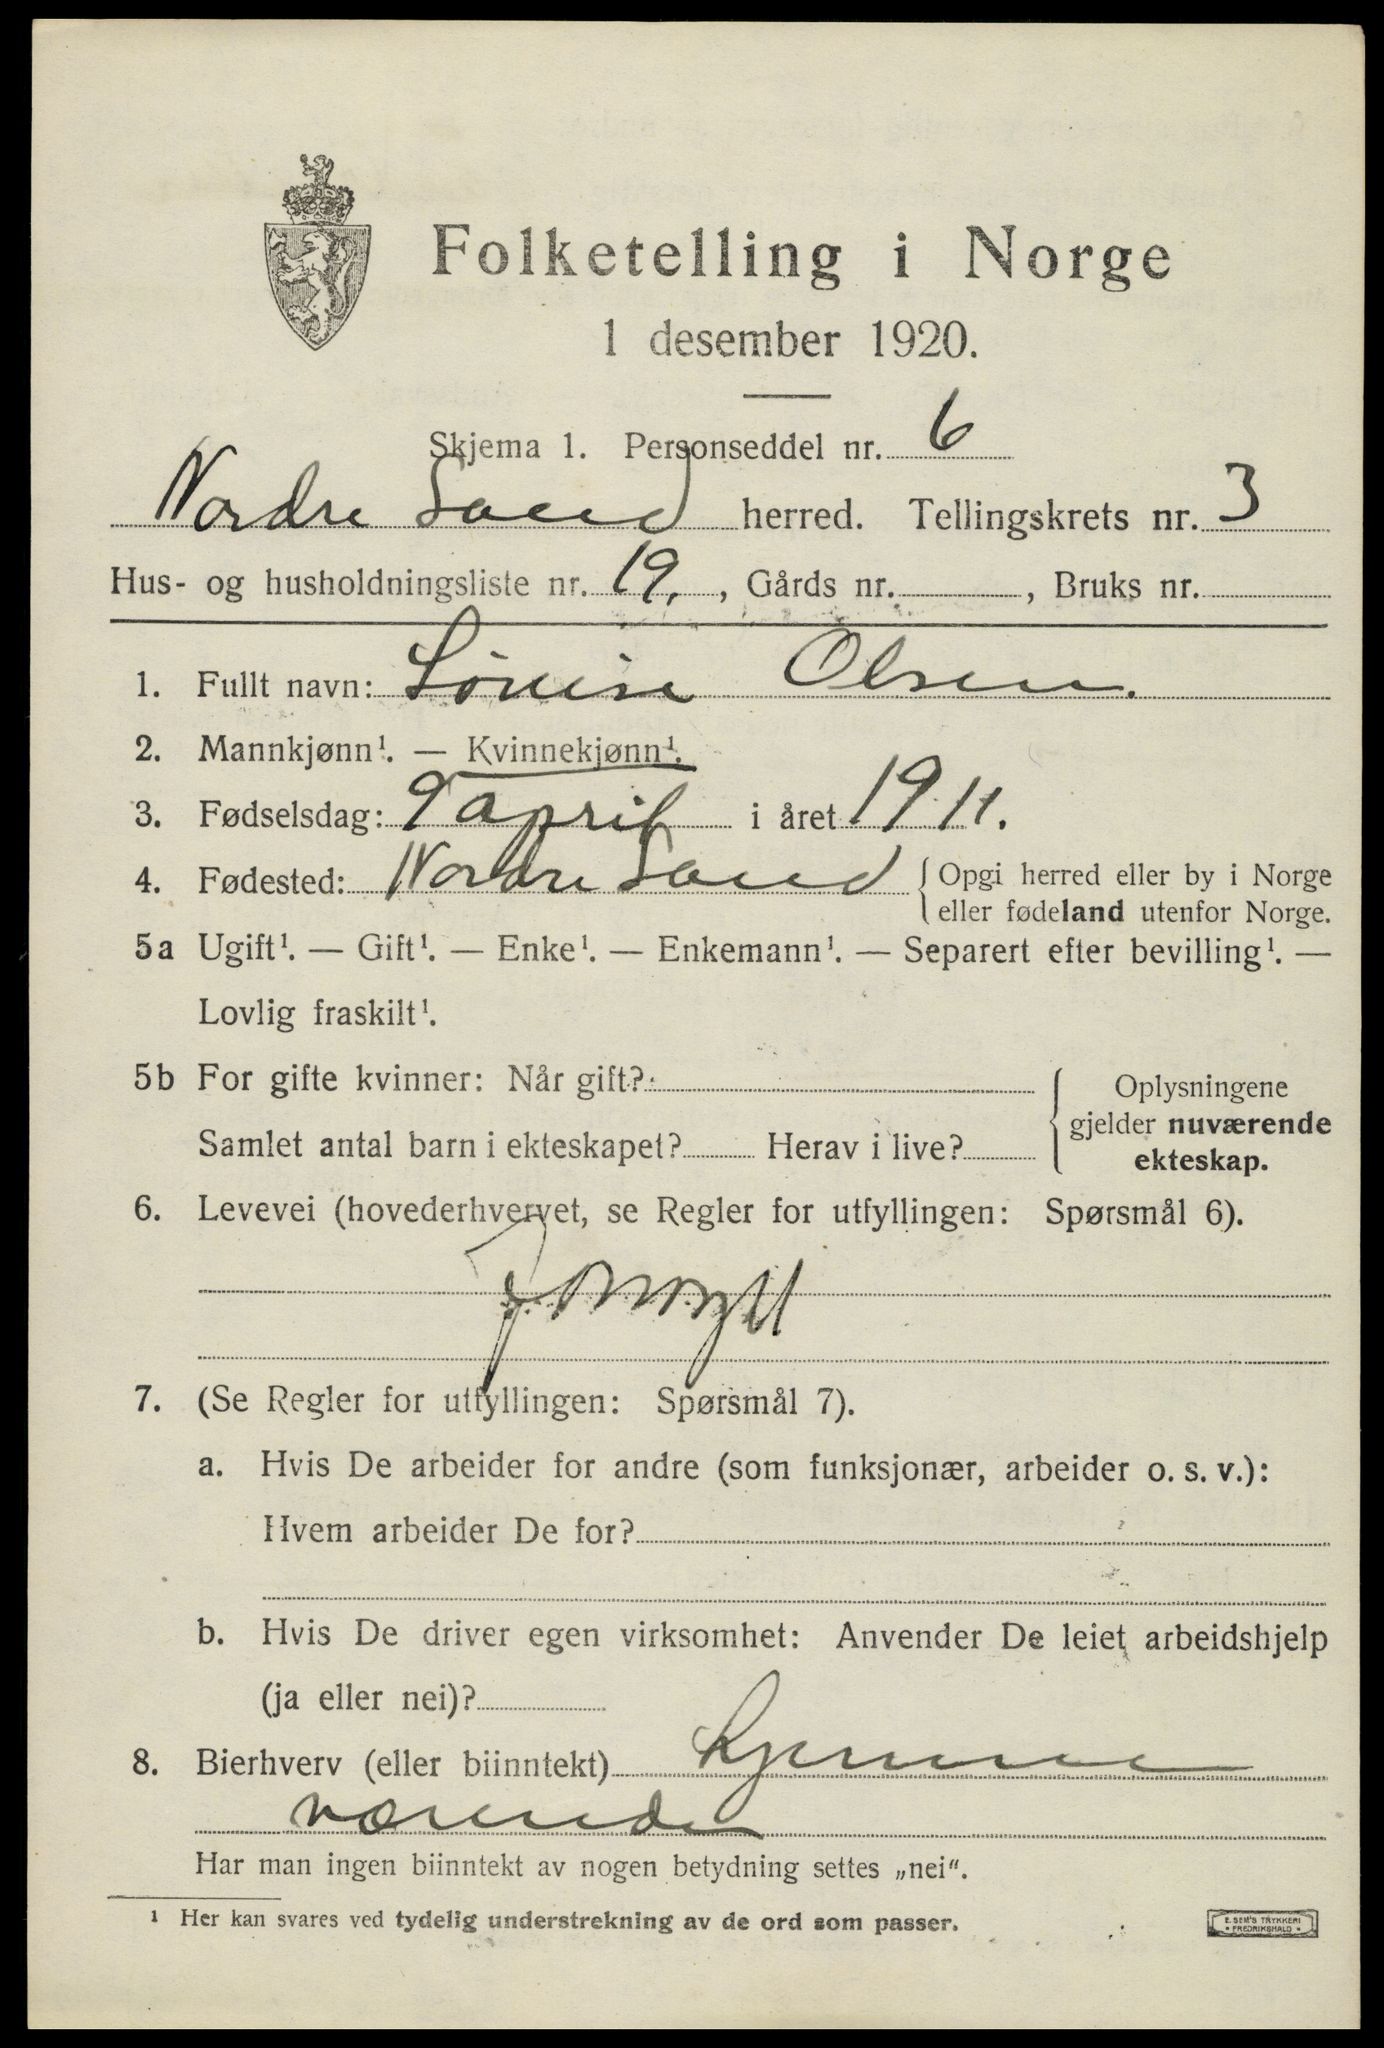 Folketelling i Norge
1 desember 1920.
Skjema 1. Personseddel nr. 6
Nordre Land herred. Tellingskrets nr. 3
Hus- og husholdningsliste nr. 19. , Gårds nr. , Bruks nr.
1. Fullt navn: Lovise Olsen.
2. Mannkjønn¹. — Kvinnekjønn¹.
3. Fødselsdag: 9 april i året 1911.
4. Fødested: Nordre Land { Opgi herred eller by i Norge
eller fødeland utenfor Norge.
5a Ugift¹. — Gift¹. — Enke¹. — Enkemann¹. — Separert efter bevilling¹. —
Lovlig fraskilt¹.
5b For gifte kvinner: Når gift?
Samlet antal barn i ekteskapet? Herav i live?
Oplysningene
gjelder nuværende
ekteskap.
6. Levevei (hovederhvervet, se Regler for utfyllingen: Spørsmål 6).
7. (Se Regler for utfyllingen: Spørsmål 7).
a. Hvis De arbeider for andre (som funksjonær, arbeider o. s. v.):
Hvem arbeider De for?
b. Hvis De driver egen virksomhet: Anvender De leiet arbeidshjelp
(ja eller nei)?
8. Bierhverv (eller biinntekt) hjemme
værende
Har man ingen biinntekt av nogen betydning settes „nei".
¹ Her kan svares ved tydelig understrekning av de ord som passer.
E. SEM'S TRYKKERI
FREDRIKSHALD